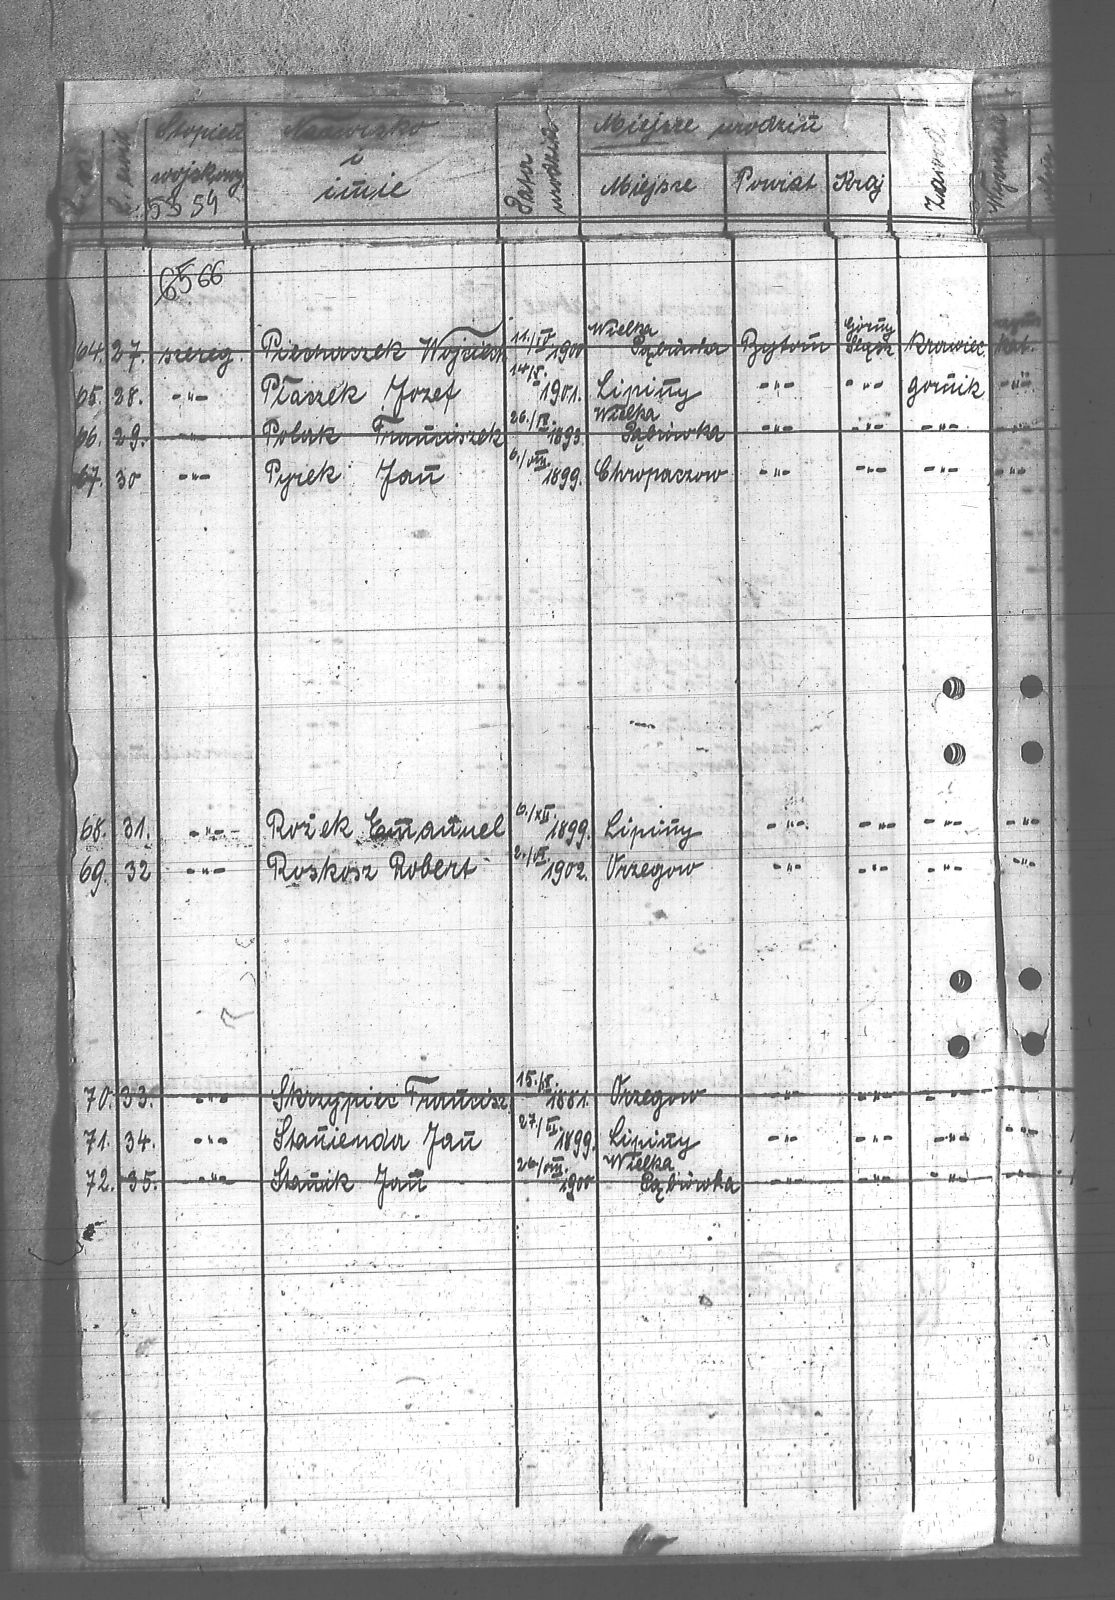 Stopień Nazwisko Data Miejsce urodzin Zawód
wojskowy i urodzin Miejsce Powiat Kraj
imie
6566
64. 27. szereg. Piechaczek Wojciech 11./IV. 1900 Wielka Dąbrówka Bytom Górny Śląsk krawiec. kat.
65. 28. -"- Ptaszek Jozef 1901. Lipiny -"- -"- gornik -"-
66. 29. -"- Polak Franciszek 1893. Wielka Dąbrówka -"- -"- -"- -"-
67. 30 -"- Pyrek Jan 6./VIII. 1899. Chropaczow -"- -"- -"- -"-
68. 31. -"- Rożek Emanuel 6./XII. 1899. Lipiny -"- -"- -"- -"-
69. 32 -"- Roskosz Robert 1902. Orzegow -"- -"- -"- -"-
70. 33. -"- Skrzypiec Francisz. 1881. Orzegow -"- -"- -"- -"-
71. 34. -"- Stanienda Jan 1899. Lipiny -"- -"- -"- -"-
72. 35. -"- Stanik Jan 26./VIII. 1900 Wielka Dąbrówka -"- -"- -"- -"-